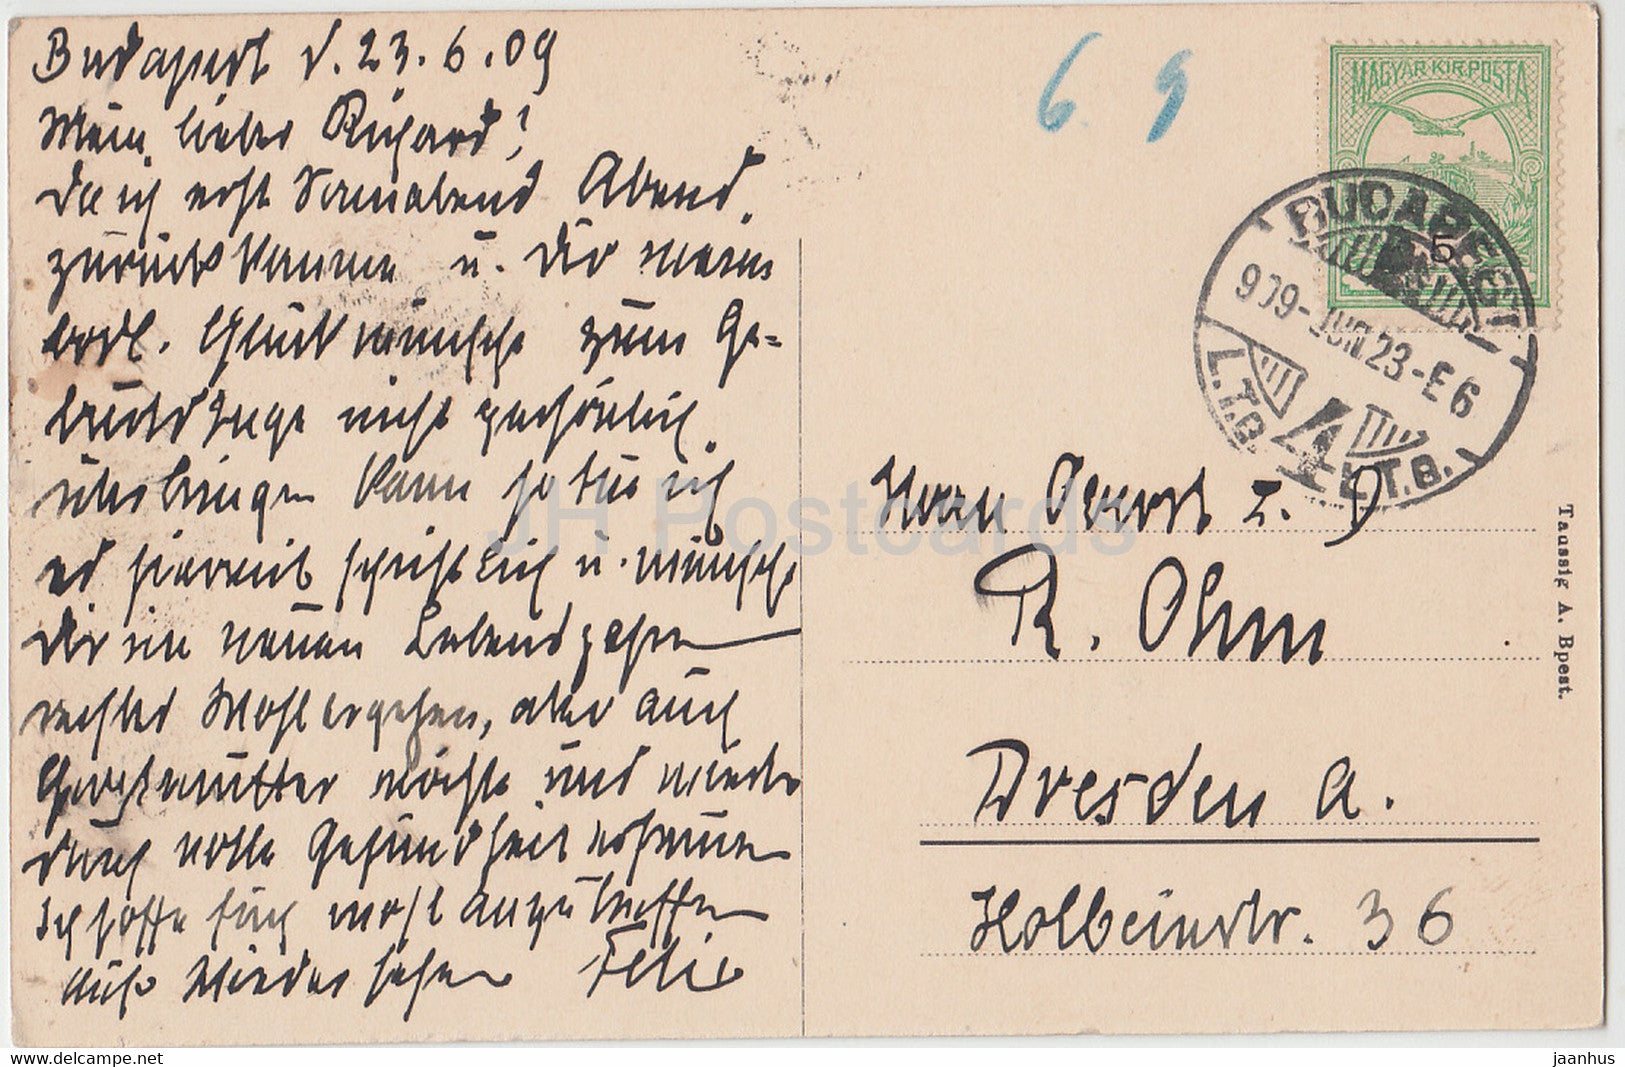 Budapest d. 23.6.09
Mein lieber Richard!
Da ich erst Sonnabend Abend
zurück komme u. Dir meine
herzl. Glückwünsche zum Ge=
burtstage nicht persönlich
überbringen kann so tue ich
es hiermit schriftlich u. wünsche
Dir im neuen Lebensjahre
rechtes Wohlergehen, aber auch
Grossmutter möchte uns wieder
durch volle Gesundheit erfreuen
Ich hoffe Euch wohl anzutreffen
Auf Wiedersehen Felix
6 9
MAGYAR KIR. POSTA
5
BUDAPEST
909-JUN 23-E6
L.T.B. 4 L.T.B.
Herrn Oberst z. D
R. Ohm
Dresden A.
Holbeinstr. 36
Taussig A. Bpest.
JH Postcards
delcampe.net
jaanhus